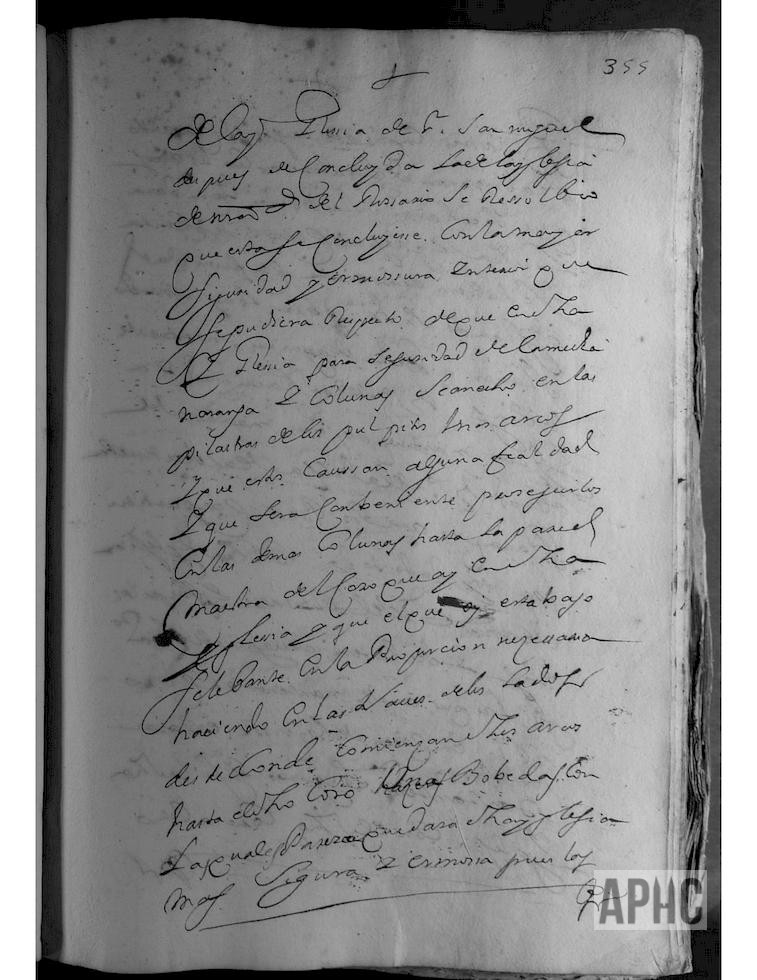 355
dela Yglesia de Sr. San miguel
despues de Concluyda La dela yglesia
de nra del Rossario Se Ressolbio
que esta Se Concluyese. Con la mayor
Siguridad y ermossura Interior que
Se pudiera Respecto de que en dha
Yglesia para Seguridad de la media
naranja Y Colunas Se an echo en las
pilastras de los pulpitos Unos arcos
Y que estos Caussan alguna fealdad
Y que Sera Conbeniente proseguirlos
En las demas Colunas hasta la pared
maestra del Coro que ay en dha
Yglesia Y que el que oy esta bajo
Se lebante En la Proporcion nezessaria
haciendo En las Naues de los Lados
desde donde Comienzan dhos arcos
hasta el dho Coro Unas Bobedas Con
Las quales Pareze quedara dha yglesia
mas Segura Y ermosa pues los
APHC